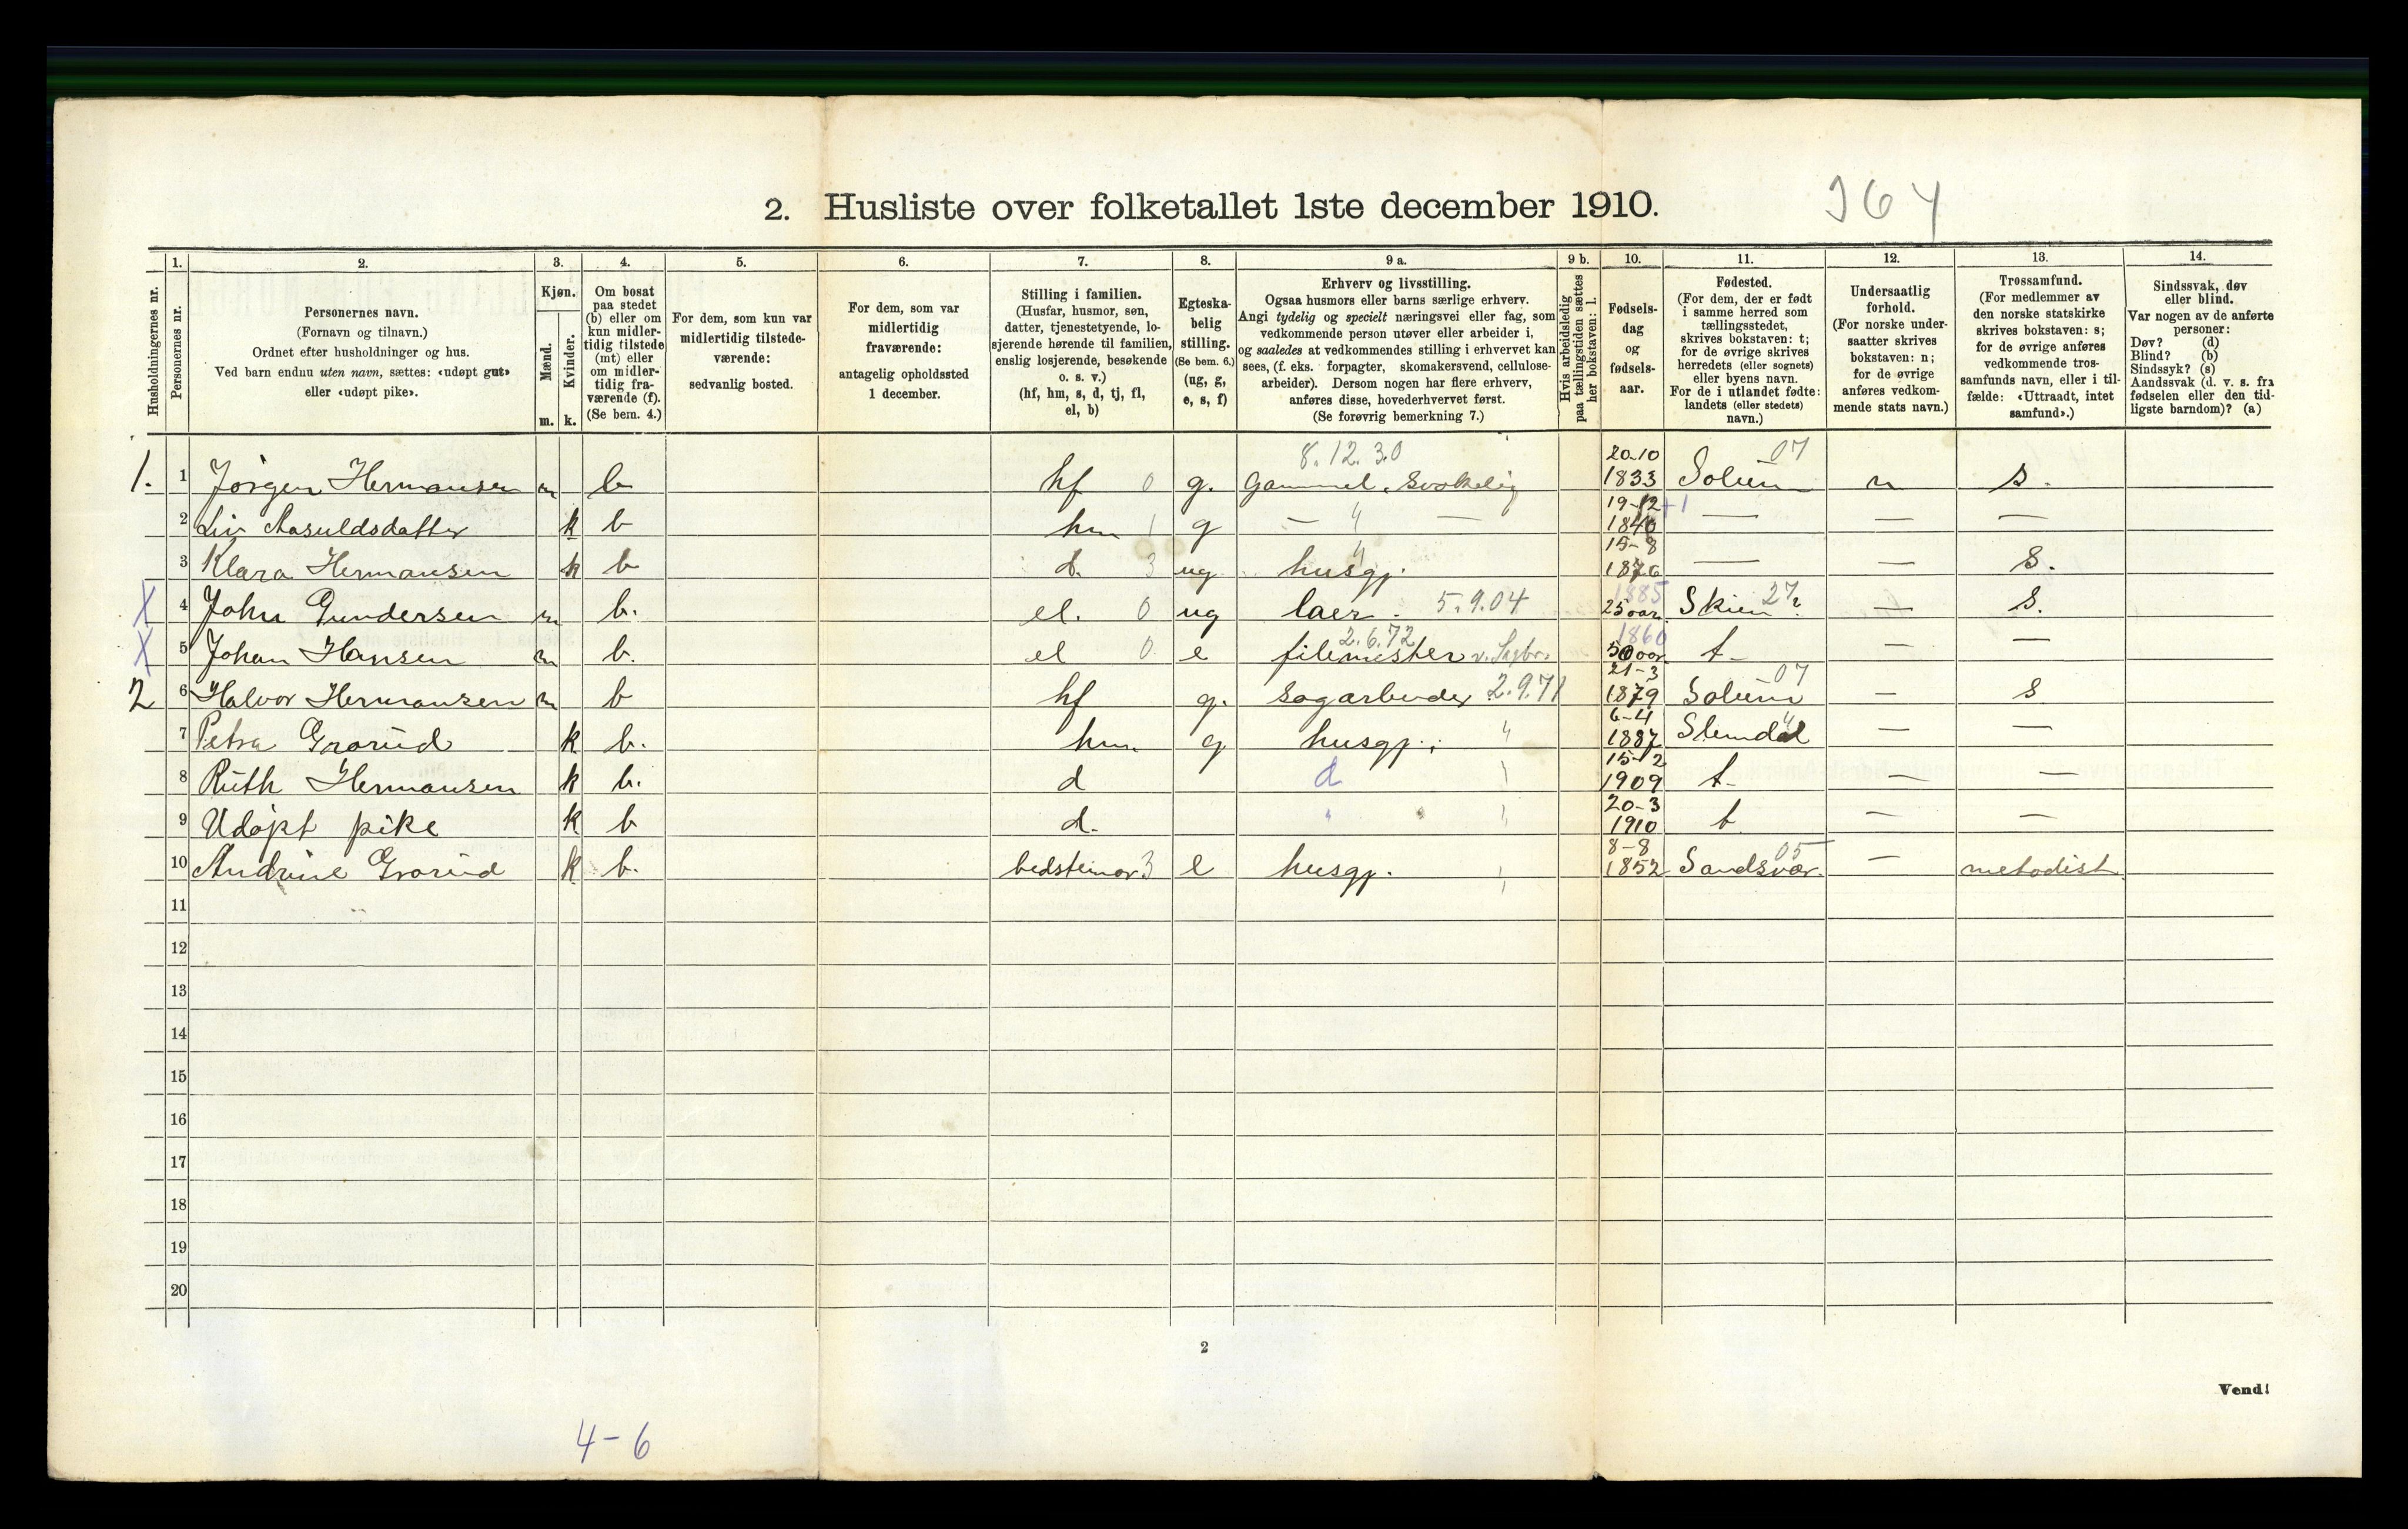 2. Husliste over folketallet 1ste december 1910.
364
1. 2. 3. 4. 5. 6. 7. 8. 9 a. 9 b. 10. 11. 12. 13. 14.
Husholdningernes nr.
Personernes nr.
Personernes navn.
(Fornavn og tilnavn.)
Ordnet efter husholdninger og hus.
Ved barn endnu uten navn, sættes: «udøpt gut»
eller «udøpt pike».
Kjøn.
Mænd.
Kvinder.
m. k.
Om bosat
paa stedet
(b) eller om
kun midler-
tidig tilstede
(mt) eller
om midler-
tidig fra-
værende (f).
(Se bem. 4.)
For dem, som kun var
midlertidig tilstede-
værende:
sedvanlig bosted.
For dem, som var
midlertidig
fraværende:
antagelig opholdssted
1 december.
Stilling i familien.
(Husfar, husmor, søn,
datter, tjenestetyende, lo-
sjerende hørende til familien,
enslig losjerende, besøkende
o. s. v.)
(hf, hm, s, d, tj, fl,
el, b)
Egteska-
belig
stilling.
(Se bem. 6.)
(ug, g,
e, s, f)
Erhverv og livsstilling.
Ogsaa husmors eller barns særlige erhverv.
Angi tydelig og specielt næringsvei eller fag, som
vedkommende person utøver eller arbeider i,
og saaledes at vedkommendes stilling i erhvervet kan
sees, (f. eks. forpagter, skomakersvend, cellulose-
arbeider). Dersom nogen har flere erhverv,
anføres disse, hovederhvervet først.
(Se forøvrig bemerkning 7.)
Hvis arbeidsledig
paa tællingstiden sættes
her bokstaven: l.
Fødsels-
dag
og
fødsels-
aar.
Fødested.
(For dem, der er født
i samme herred som
tællingsstedet,
skrives bokstaven: t;
for de øvrige skrives
herredets (eller sognets)
eller byens navn.
For de i utlandet fødte:
landets (eller stedets)
navn.)
Undersaatlig
forhold.
(For norske under-
saatter skrives
bokstaven: n;
for de øvrige
anføres vedkom-
mende stats navn.)
Trossamfund.
(For medlemmer av
den norske statskirke
skrives bokstaven: s;
for de øvrige anføres
vedkommende tros-
samfunds navn, eller i til-
fælde: «Uttraadt, intet
samfund».)
Sindssvak, døv
eller blind.
Var nogen av de anførte
personer:
Døv? (d)
Blind? (b)
Sindssyk? (s)
Aandssvak (d. v. s. fra
fødselen eller den tid-
ligste barndom)? (a)
8.12.30 20-10 07
1. 1 Jörgen Hermansen m b hf 0 g. Gammel, Svakelig 1833 Solum n s.
19-12 +1
2 Liv Aasuldsdatter k b hm 1 g — " — 1840 — — —
15-8
3 Klara Hermansen k b d. 3 ug husgj. 1876 — — s.
1885 27
X 4 John Gundersen m b. el. 0 ug laer. 5.9.04 25 aar Skien ? — s.
2.6.72 1860
X 5 Johan Hansen m b. el 0 e filemester v. Sagbr. 50 aar t — —
21-3 07
2 6 Halvor Hermansen m b hf g. Sagarbeider 2.9.71 1879 Solum — s
6-4
7 Petra Grorud k b. hm. g husgj. " 1887 Slemdal — —
15-2
8 Ruth Hermansen k b. d d 1909 t — —
20-3
9 Udøpt pike k b d. " 1910 t — —
8-8 05
10 Andrine Grorud k b. bedstemor 3 e husgj. 1852 Sandsvær. — metodist
11
12
13
14
15
16
17
18
19
20
2
Vend!
4-6